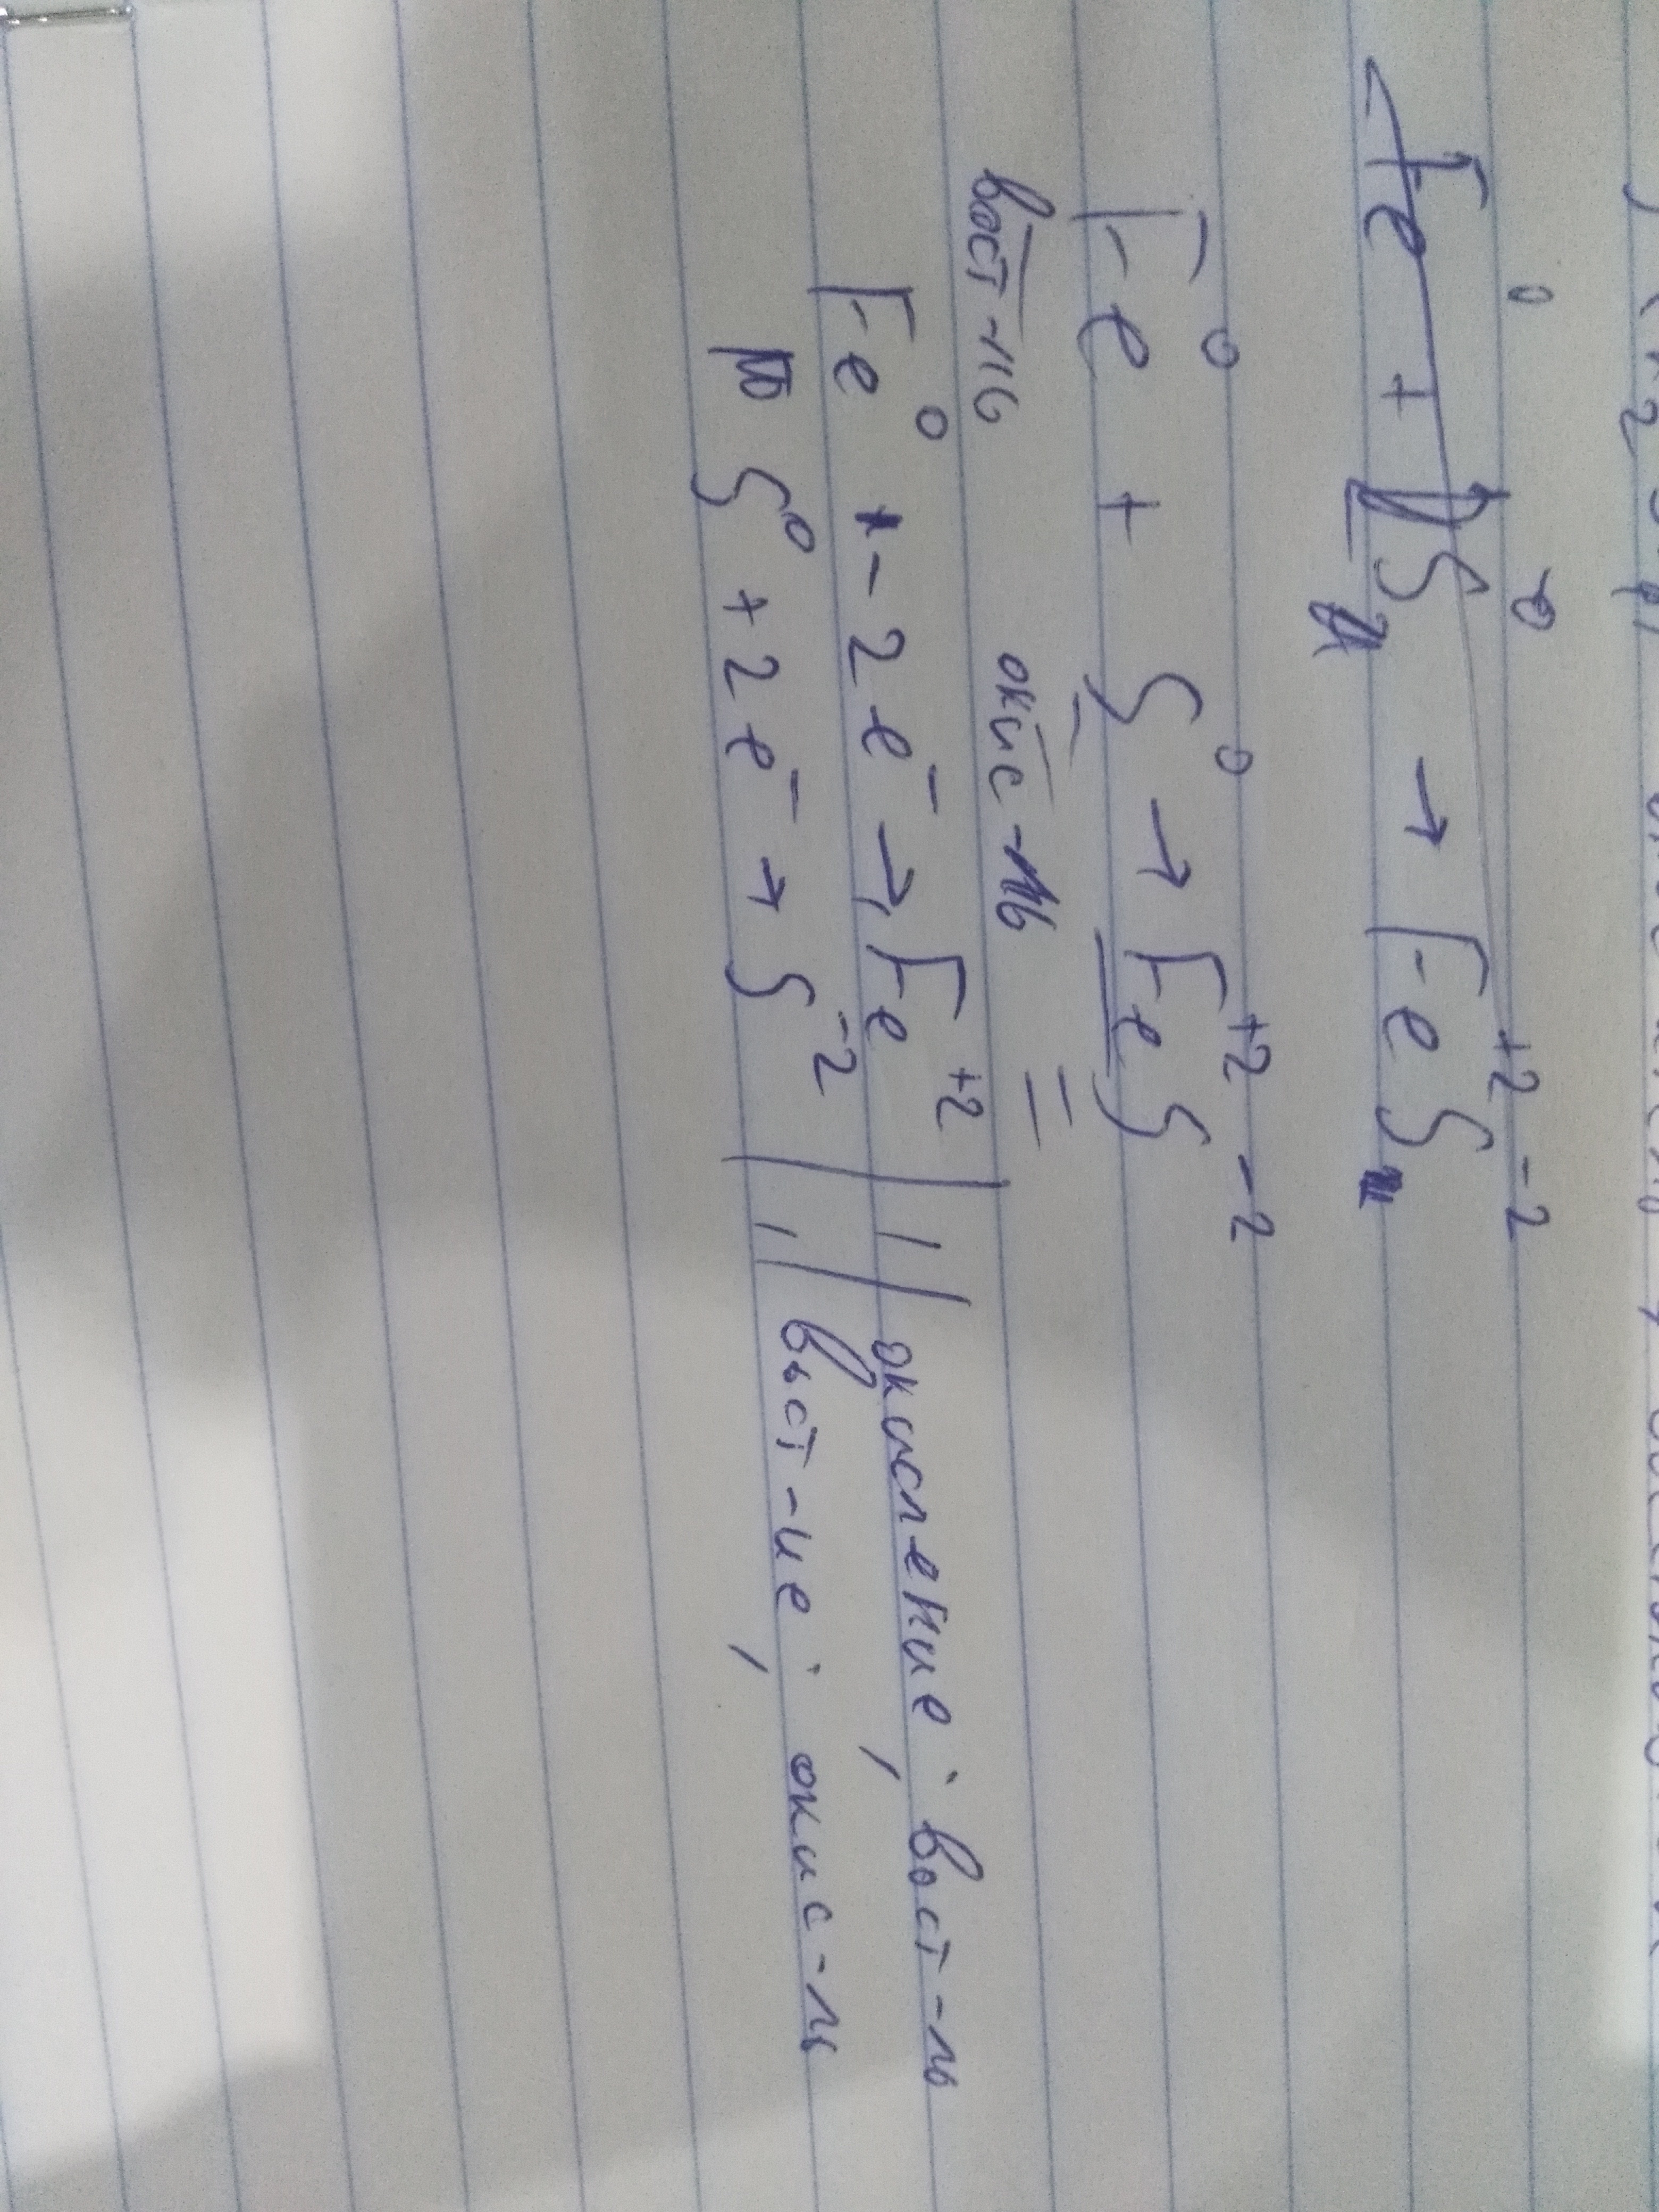 Fe⁰ + S⁰ → Fe⁺²S⁻²
Fe⁰ + S⁰ → Fe⁺²S⁻²
вост-ль окис-ль =
Fe⁰ - 2e⁻ → Fe⁺² | 1 | окисление; вост-ль
S⁰ + 2e⁻ → S⁻² | 1 | вост-ие; окис-ль